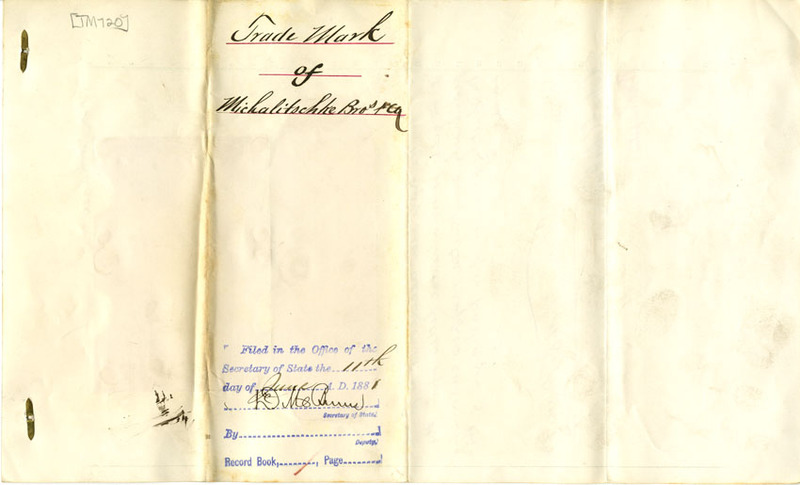 [TM720]
Trade Mark
of
Michalitschke Bros & Co
Filed in the Office of the
Secretary of State the 11th
day of June A. D. 1881
Secretary of State
By
Deputy
Record Book, , Page